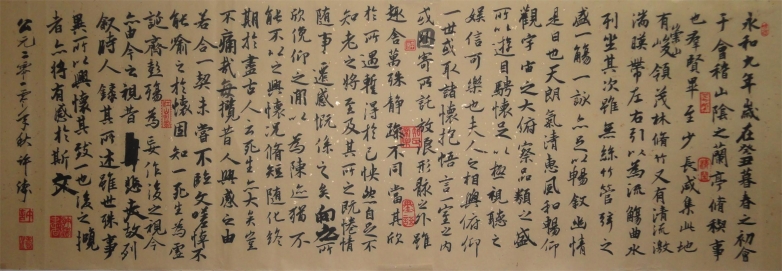 永和九年歲在癸丑暮春之初會
于會稽山陰之蘭亭脩稧事
也羣賢畢至少長咸集此地
有崇山峻領茂林脩竹又有清流激
湍暎帶左右引以為流觴曲水
列坐其次雖無絲竹管弦之
盛一觴一詠亦足以暢敘幽情
是日也天朗氣清惠風和暢仰
觀宇宙之大俯察品類之盛
所以遊目騁懷足以極視聽之
娛信可樂也夫人之相與俯仰
一世或取諸懷抱悟言一室之內
或因寄所託放浪形骸之外雖
趣舍萬殊靜躁不同當其欣
於所遇暫得於己快然自足不
知老之將至及其所之既惓情
隨事遷感慨係之矣向之所
欣俛仰之間以為陳迹猶不
能不以之興懷況脩短隨化終
期於盡古人云死生亦大矣豈
不痛哉每攬昔人興感之由
若合一契未嘗不臨文嗟悼不
能喻之於懷固知一死生為虛
誕齊彭殤為妄作後之視今
亦由今之視昔悲夫故列
敘時人錄其所述雖世殊事
異所以興懷其致一也後之攬
者亦將有感於斯文
公元二零年秋許